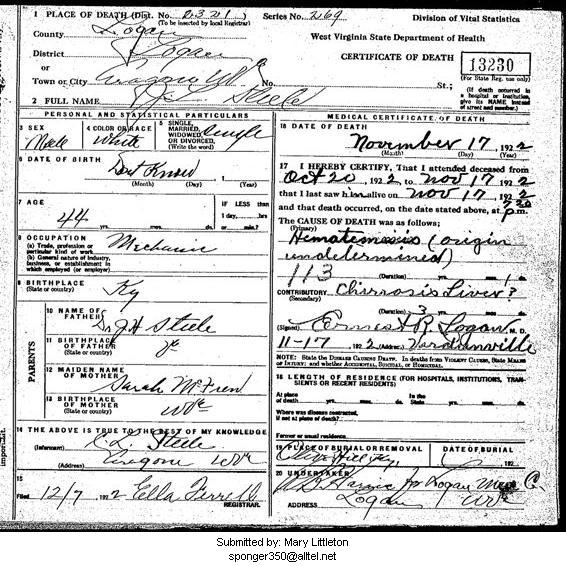 1 PLACE OF DEATH (Dist. No. 2321 Series No. 269 Division of Vital Statistics
(To be inserted by local Registrar)
County Logan West Virginia State Department of Health
District Logan CERTIFICATE OF DEATH 13230
or (For State Reg. use only)
Town or City St.; (If death occurred in a hospital or institution, give its NAME instead of street and number.)
2 FULL NAME Steele
PERSONAL AND STATISTICAL PARTICULARS
3 SEX Male
4 COLOR OR RACE White
5 SINGLE, MARRIED, WIDOWED, OR DIVORCED. (Write the word) Single
6 DATE OF BIRTH Dont Know , 1
(Month) (Day)
7 AGE 44 yrs. mos. ds. IF LESS than 1 day, hrs or min.?
8 OCCUPATION Mechanic
(a) Trade, profession or particular kind of work
(b) General nature of industry, business, or establishment in which employed (or employer)
9 BIRTHPLACE Ky
(State or country)
PARENTS
10 NAME OF FATHER Steele
11 BIRTHPLACE OF FATHER
(State or country)
12 MAIDEN NAME OF MOTHER Sarah
13 BIRTHPLACE OF MOTHER
(State or country)
14 THE ABOVE IS TRUE TO THE BEST OF MY KNOWLEDGE
(Informant) Steele
(Address)
15
Filed 12/7 1922 Ella Ferrell
REGISTRAR.
MEDICAL CERTIFICATE OF DEATH
16 DATE OF DEATH
November 17, 1922
(Month) (Day)
17 I HEREBY CERTIFY, That I attended deceased from
Oct 20, 1922 to Nov 17 1922
that I last saw him alive on Nov 17 1922
and that death occurred, on the date stated above, at 7 20 p.m.
The CAUSE OF DEATH was as follows:
(Primary)
Hematemesis (origin
undetermined)
113 (Duration) yrs. mos. ds.
CONTRIBUTORY Chirrosis Liver?
(Secondary)
(Duration) 3 yrs. mos. ds.
(Signed) Ernest R. Logan, M.D.
11-17 1922 (Address) Verdunville
NOTE: State the DISEASE CAUSING DEATH. In deaths from VIOLENT CAUSES, State MEANS OF INJURY; and whether ACCIDENTAL, SUICIDAL, or HOMICIDAL.
18 LENGTH OF RESIDENCE (FOR HOSPITALS, INSTITUTIONS, TRANSIENTS OR RECENT RESIDENTS)
At place of death yrs. mos. ds. In the State yrs. mos. ds.
Where was disease contracted, if not at place of death?
Former or usual residence
19 PLACE OF BURIAL OR REMOVAL DATE OF BURIAL
Olive Hill Ky. 192
20 UNDERTAKER
for Logan
Logan
Submitted by: Mary Littleton
sponger350@alltel.net